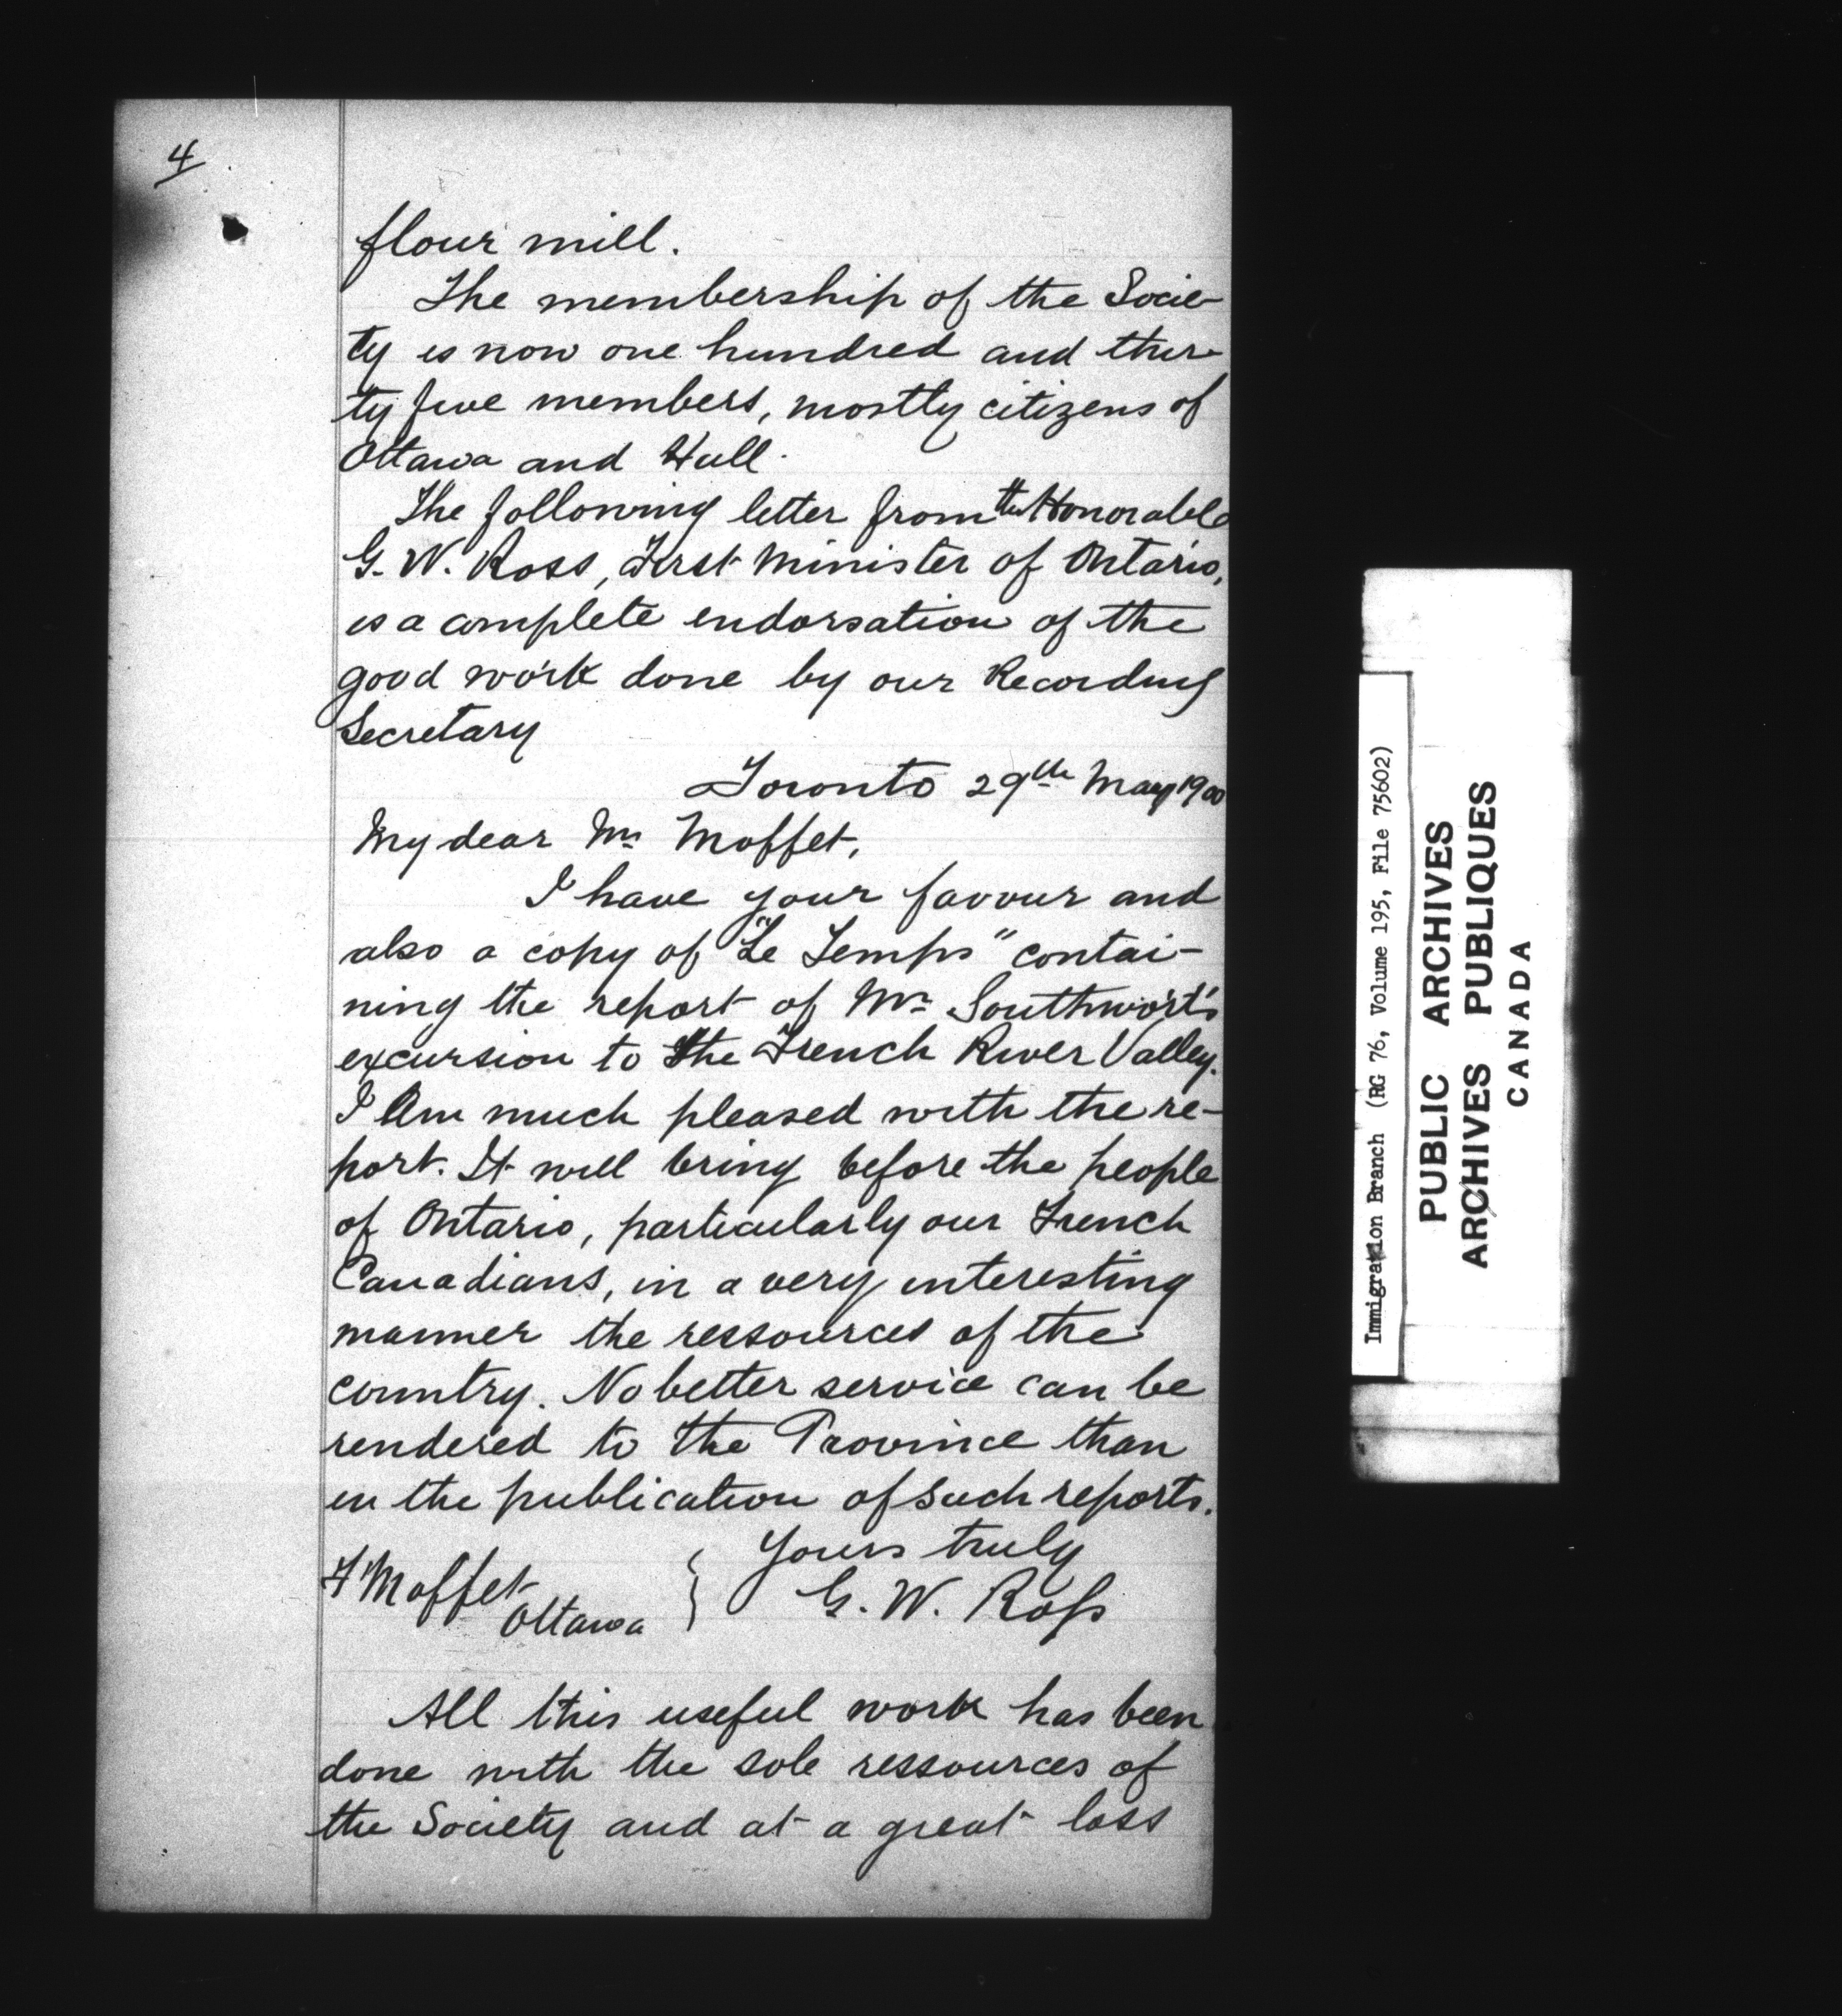 4
flour mill.
The membership of the Socie-
ty is now one hundred and thir-
ty five members, mostly citizens of
Ottawa and Hull.
The following letter from the Honorable
G. W. Ross, First Minister of Ontario,
is a complete endorsation of the
good work done by our Recording
Secretary
Toronto 29th May 1900
My dear Mr Moffet,
I have your favour and
also a copy of "Le Temps" contai-
ning the report of Mr Southwort's
excursion to the French River Valley.
I Am much pleased with the re-
port. It will bring before the people
of Ontario, particularly our French
Canadians, in a very interesting
manner the ressources of the
country. No better service can be
rendered to the Province than
in the publication of such reports.
Yours truly
F Moffet
Ottawa } G. W. Ross
All this useful work has been
done with the sole ressources of
the Society and at a great loss
Immigration Branch (RG 76, Volume 195, File 75602)
PUBLIC ARCHIVES
ARCHIVES PUBLIQUES
CANADA